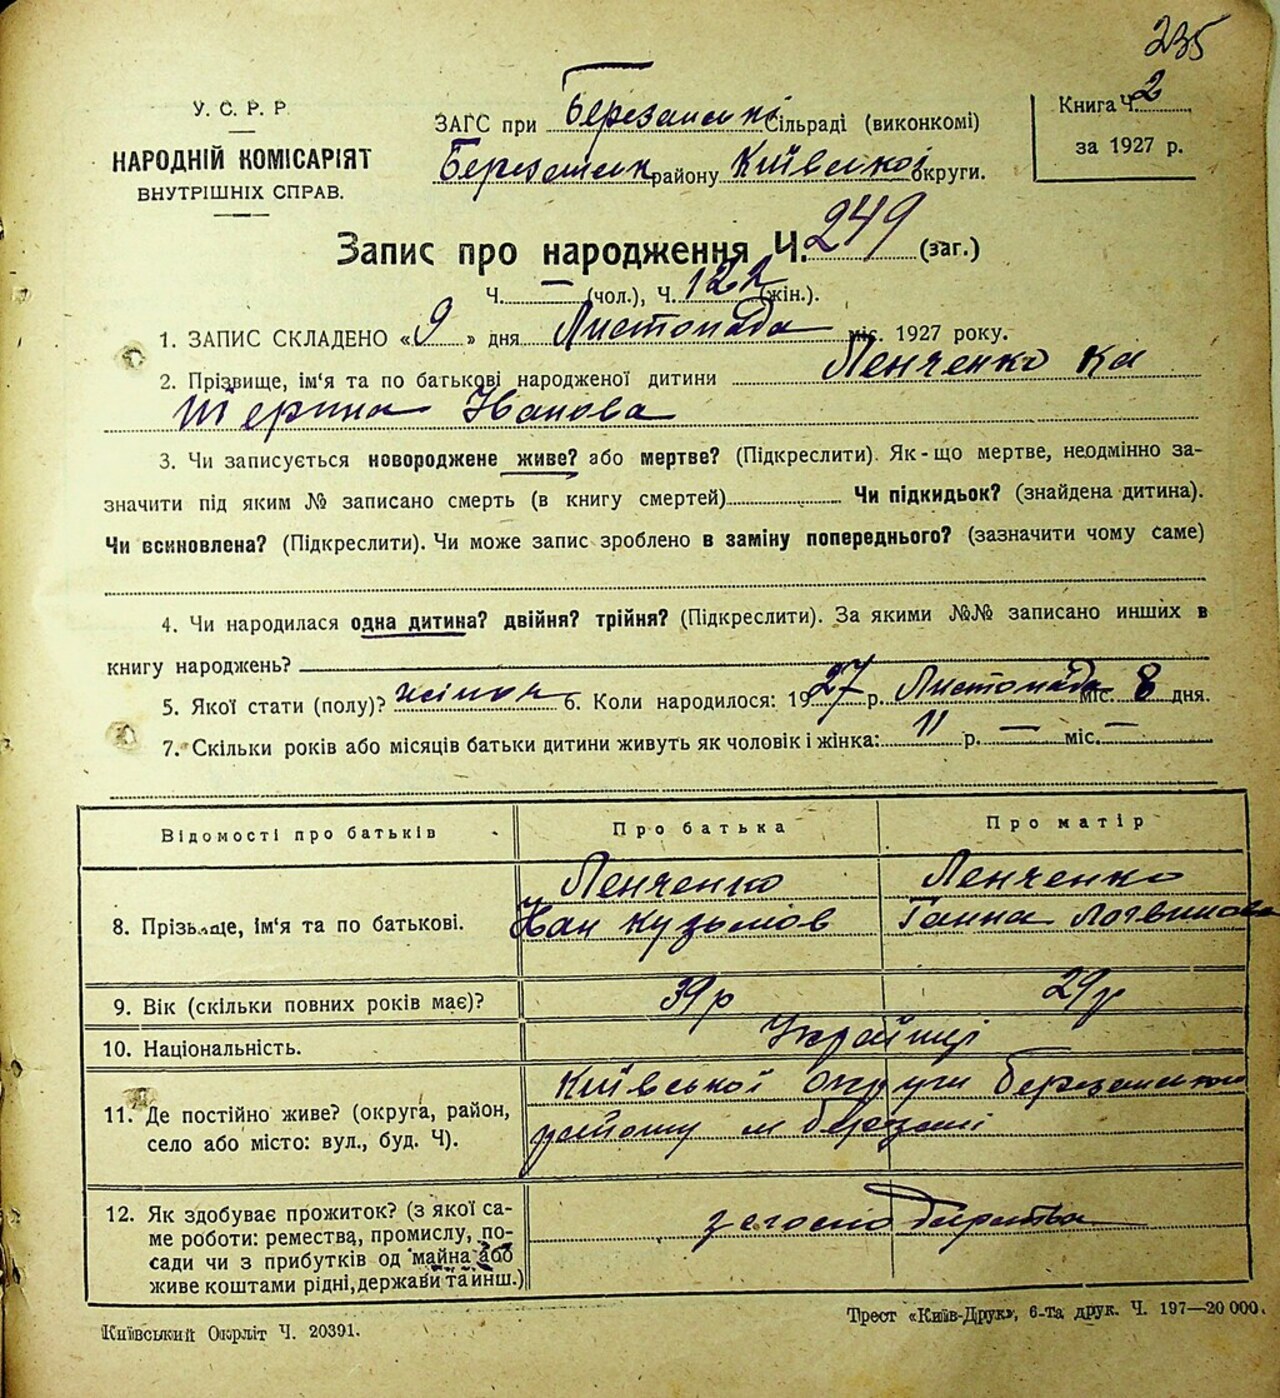 235
У. С. Р. Р.
НАРОДНІЙ КОМІСАРІЯТ
ВНУТРІШНІХ СПРАВ.
ЗАГС при Березанські Сільраді (виконкомі)
Березанськ району Київської округи.
Книга Ч. 2
за 1927 р.
Запис про народження Ч. 249 (заг.)
Ч. — (чол.), Ч. 122 (жін.).
1. ЗАПИС СКЛАДЕНО «9» дня Листопада міс. 1927 року.
2. Прізвище, ім'я та по батькові народженої дитини Ленченко Ка
терина Іванова
3. Чи записується новороджене живе? або мертве? (Підкреслити). Як-що мертве, неодмінно за-
значити під яким № записано смерть (в книгу смертей) Чи підкидьок? (знайдена дитина).
Чи всиновлена? (Підкреслити). Чи може запис зроблено в заміну попереднього? (зазначити чому саме)
4. Чи народилася одна дитина? двійня? трійня? (Підкреслити). За якими №№ записано инших в
книгу народжень?
5. Якої стати (полу)? жіноч 6. Коли народилося: 1927 р. Листопада міс. 8 дня.
7. Скільки років або місяців батьки дитини живуть як чоловік і жінка: 11 р. — міс. —
Відомості про батьків Про батька Про матір
Ленченко Ленченко
8. Прізвище, ім'я та по батькові. Іван Кузьмов Ганна Логвинова
9. Вік (скільки повних років має)? 39 р 29 р
10. Національність. Українці
Київської округи Березанського
11. Де постійно живе? (округа, район,
село або місто: вул., буд. Ч). району м Березані
12. Як здобуває прожиток? (з якої са-
ме роботи: ремества, промислу, по- з господарства
сади чи з прибутків од майна або
живе коштами рідні, держави та инш.)
Київський Окрліт Ч. 20391.
Трест «Київ-Друк», 6-та друк. Ч. 197—20 000.